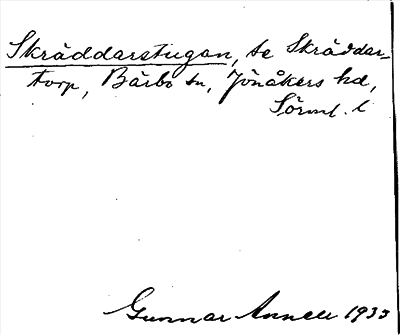 Skräddarstugan, se Skräddar-
torp, Bärbo sn, Jönåkers hd,
Sörml. l
Gunnar Annell 1933